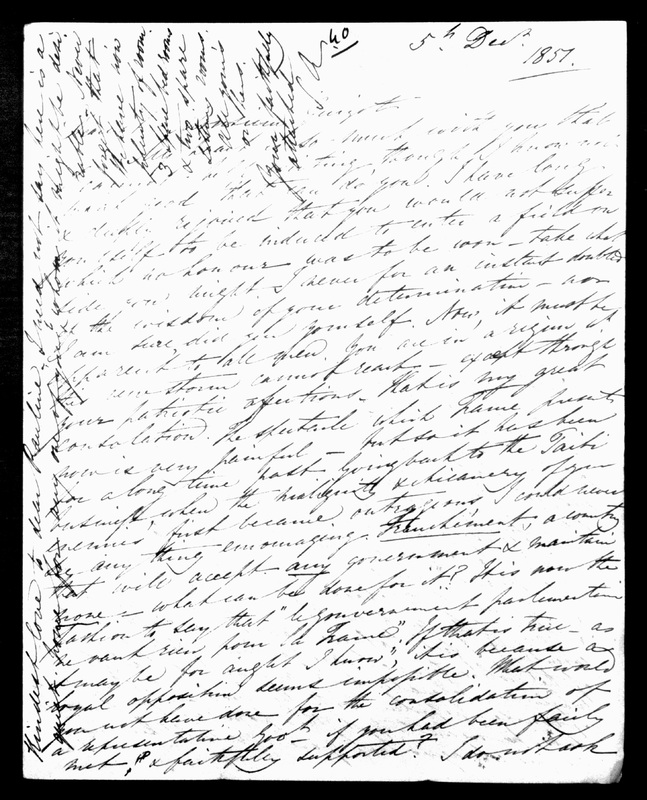 40
5th Decr.
1851.
Guizot
so much with you that
though I know no
good that can do you. I have long
rejoiced that you would not suffer
yourself to be induced to enter a field on
which no honour was to be won – take what
side you might. I never for an instant doubted
the wisdom of your determination – nor
I am sure did you yourself. Now, it must be
apparent to all men. You are in a region it
storm cannot reach – except through
your patriotic affections – that is my great
consolation. The spectacle which France presents
now is very painful – but so it has been
for a long time past. Going back to the Taiti
business, when the malignity & chicanery of your
enemies first became outrageous I could never
see any thing encouraging. Franchement, a country
that will accept any government & maintain
none – what can be done for it? It is now the
fashion to say that "le gouvernement parlementaire
ne vaut rien pour la France". If that is true – as
it may be for aught I know, it is because a
royal opposition seems impossible. What would
you not have done for the consolidation of
a representative govt. if you had been fairly
met, & faithfully supported? I do not ask
Kindest love to dear Pauline. I need not say here is a
quiet home for any one of you to whom it might be desi-
forget that
We have now
plenty of room.
3 good bed rooms
& two spare
rooms.
yours
Yours faithfully
attached